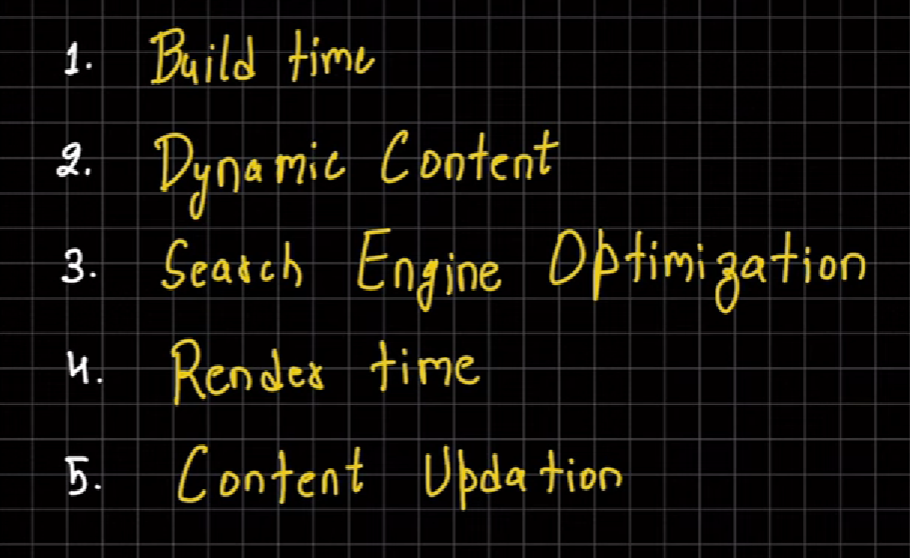 1. Build time
2. Dynamic Content
3. Search Engine Optimization
4. Render time
5. Content Updation